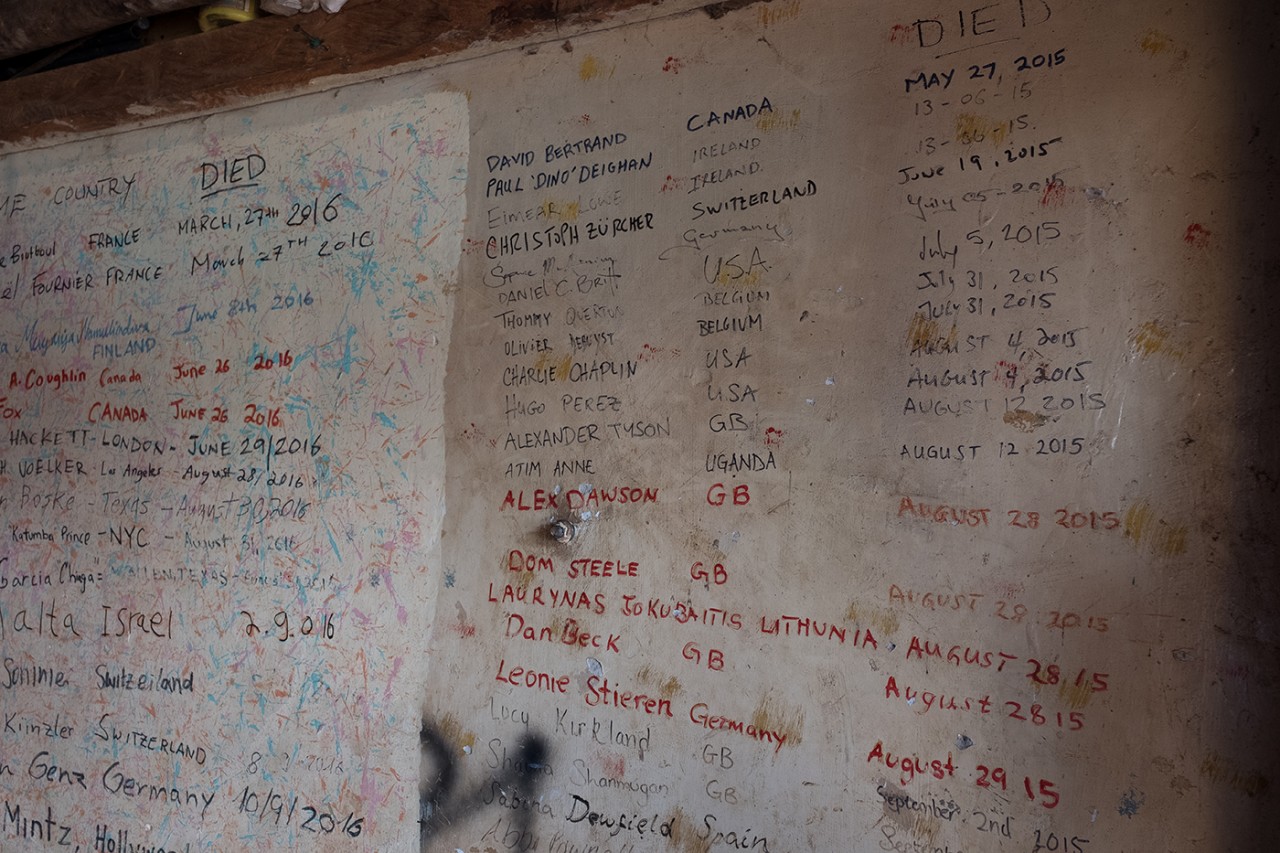 COUNTRY DIED
FRANCE MARCH, 27TH 2016
FOURNIER FRANCE March 27TH 2016
June 8th 2016
FINLAND
A. Coughlin Canada June 26 2016
Fox CANADA JUNE 26 2016
HACKETT - LONDON - JUNE 29/2016
VOELKER - Los Angeles - August 28/2016
Texas - August 30, 2016
Katumba Prince - NYC - August 31, 2016
Garcia
Israel 2.9.016
Switzeiland
Künzler SWITZERLAND
Genz Germany 10/9/2016
Mintz,
DIED
MAY 27, 2015
DAVID BERTRAND CANADA 13-06-15
PAUL 'DINO' DEIGHAN IRELAND 13-06-15.
EIMEAR LOWE IRELAND. June 19, 2015
CHRISTOPH ZÜRCHER SWITZERLAND 2015
Germany July 5, 2015
DANIEL C. Britt USA July 31, 2015
THOMMY BELGIUM July 31, 2015
OLIVIER BELGIUM AUGUST 4, 2015
CHARLIE CHAPLIN USA AUGUST 4, 2015
HUGO PEREZ USA AUGUST 12 2015
ALEXANDER TYSON GB AUGUST 12 2015
ATIM ANNE UGANDA
ALEX DAWSON GB AUGUST 28 2015
DOM STEELE GB AUGUST 28 2015
LAURYNAS JOKUBAITIS LITHUNIA, AUGUST 28, 15
Dan Beck GB August 28 15
Leonie Stieren Germany August 29 15
Lucy Kirkland GB September 2nd 2015
Shanmugan GB
Sabina Dewfield Spain